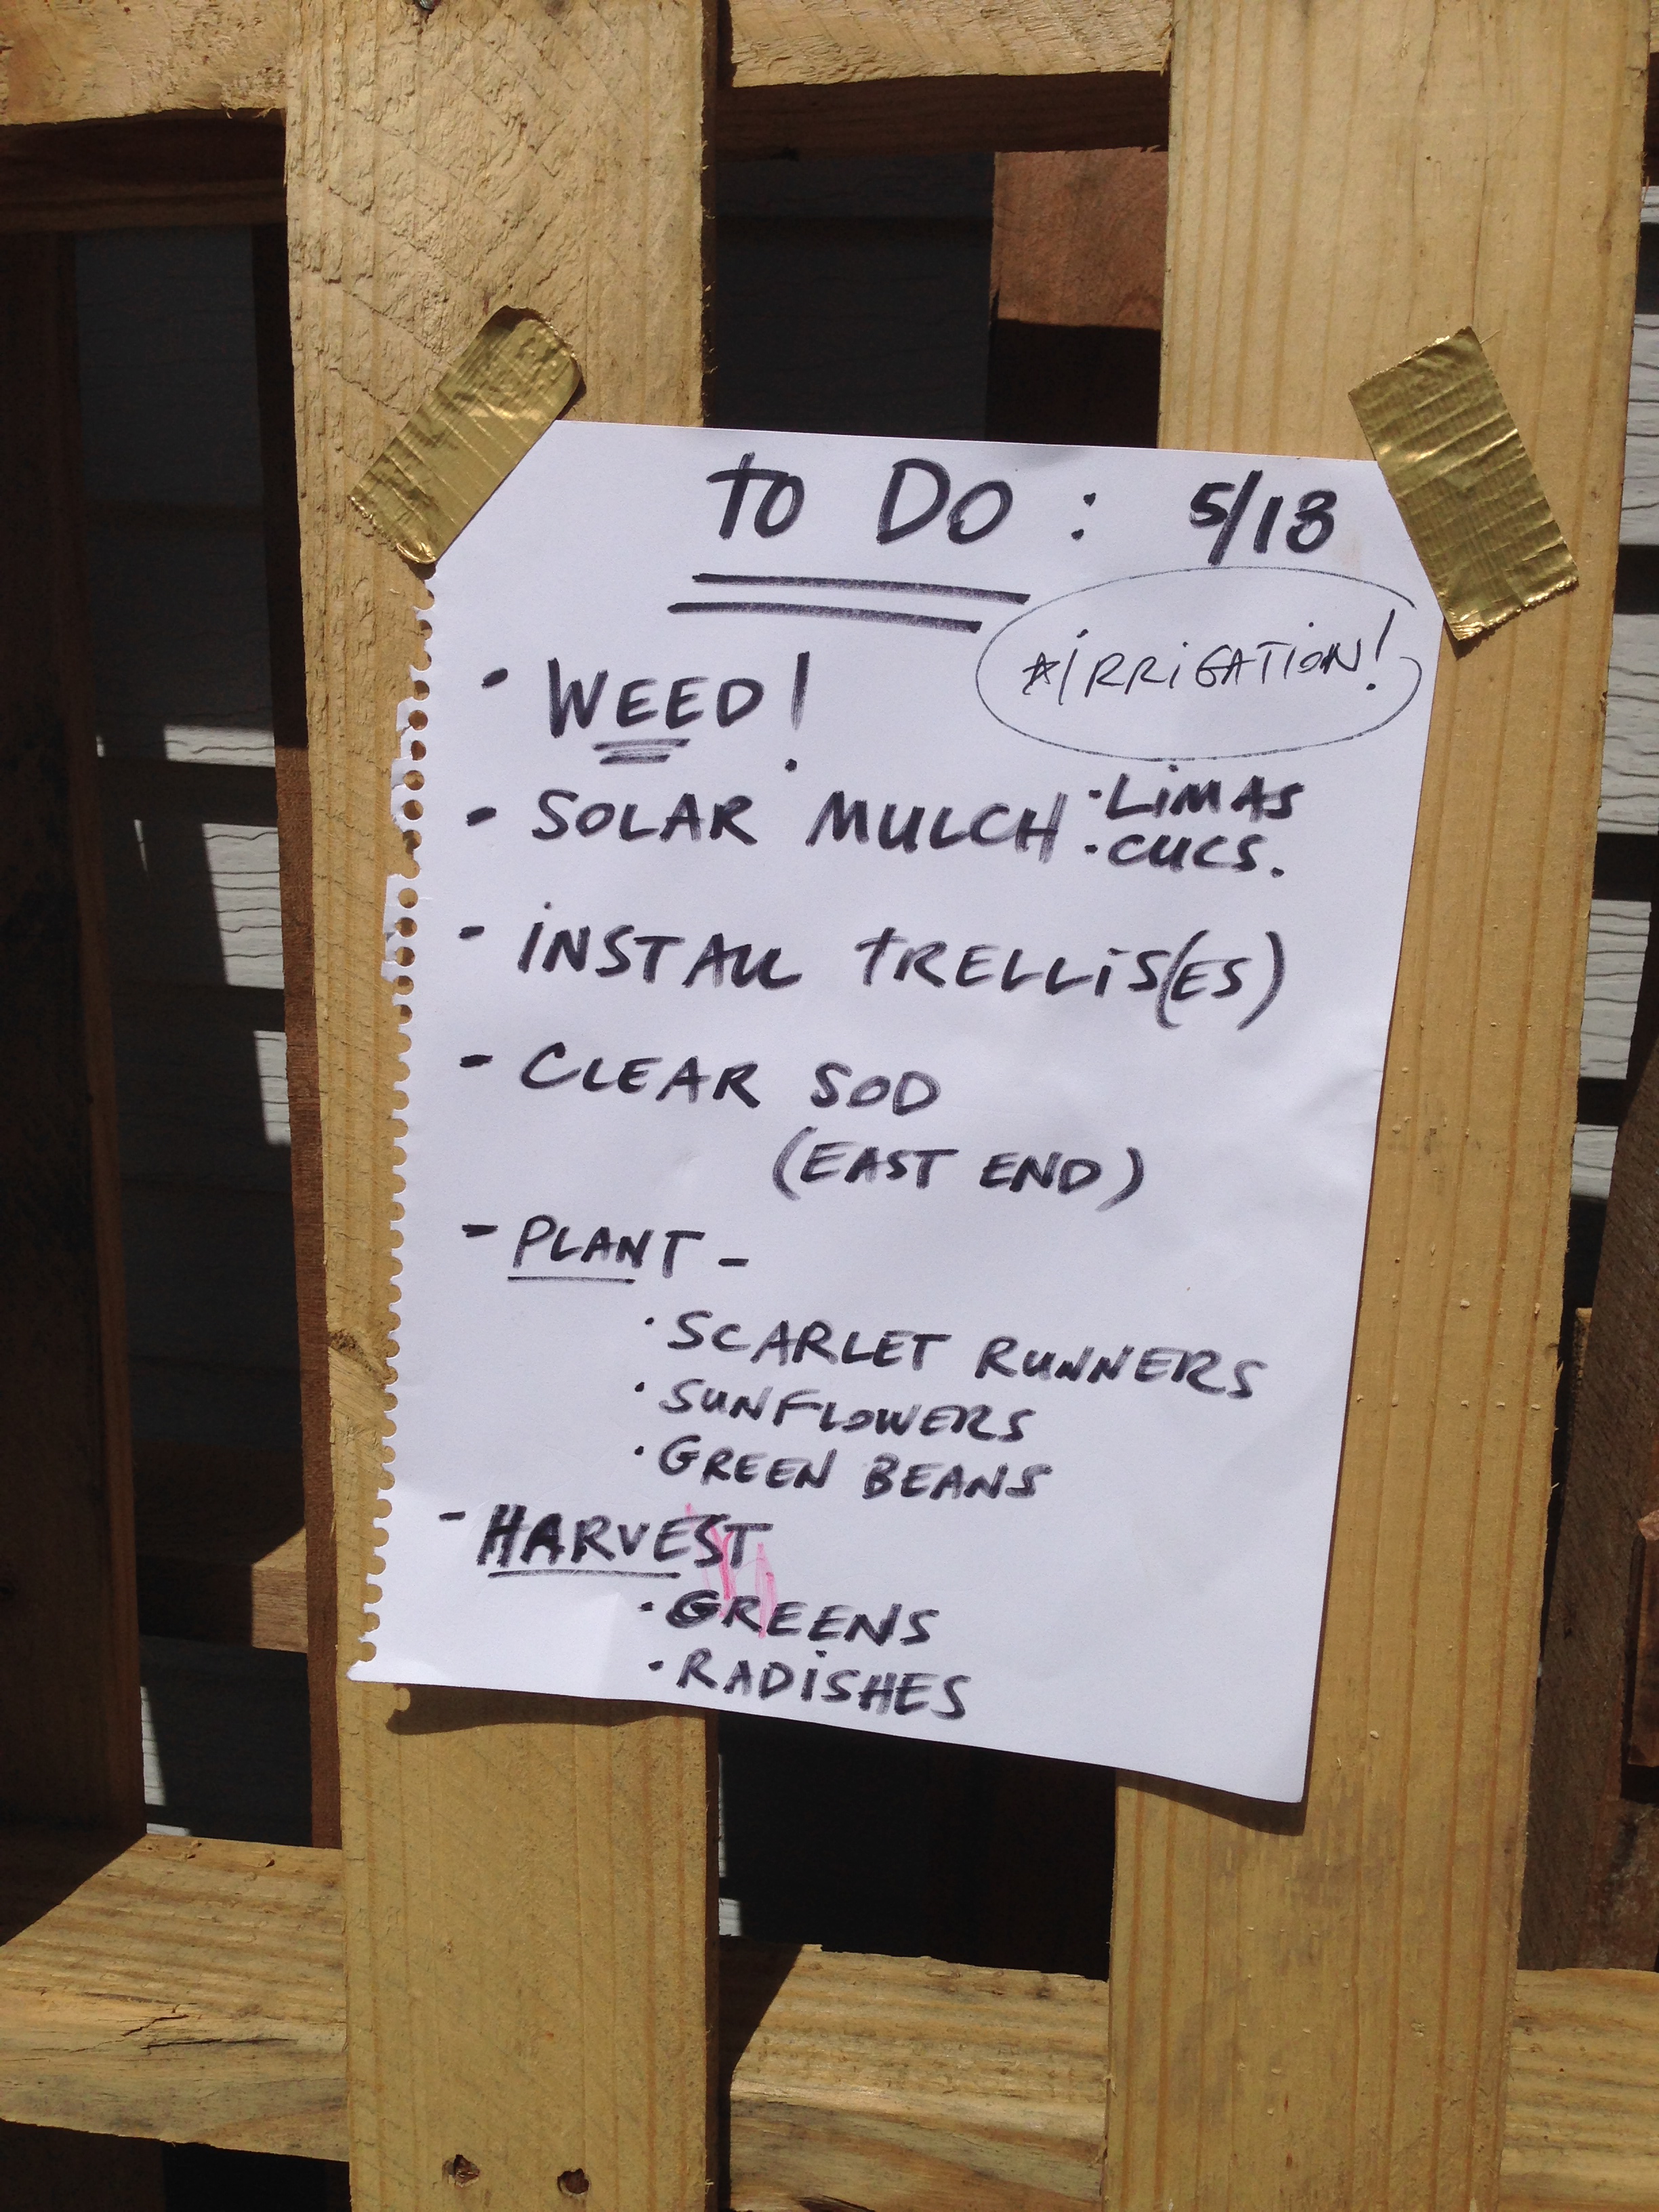 TO DO : 5/18
*IRRIGATION!
- WEED!
- SOLAR MULCH · LIMAS
· CUCS.
- INSTALL TRELLIS(ES)
- CLEAR SOD
(EAST END)
- PLANT -
· SCARLET RUNNERS
· SUNFLOWERS
· GREEN BEANS
- HARVEST
· GREENS
· RADISHES